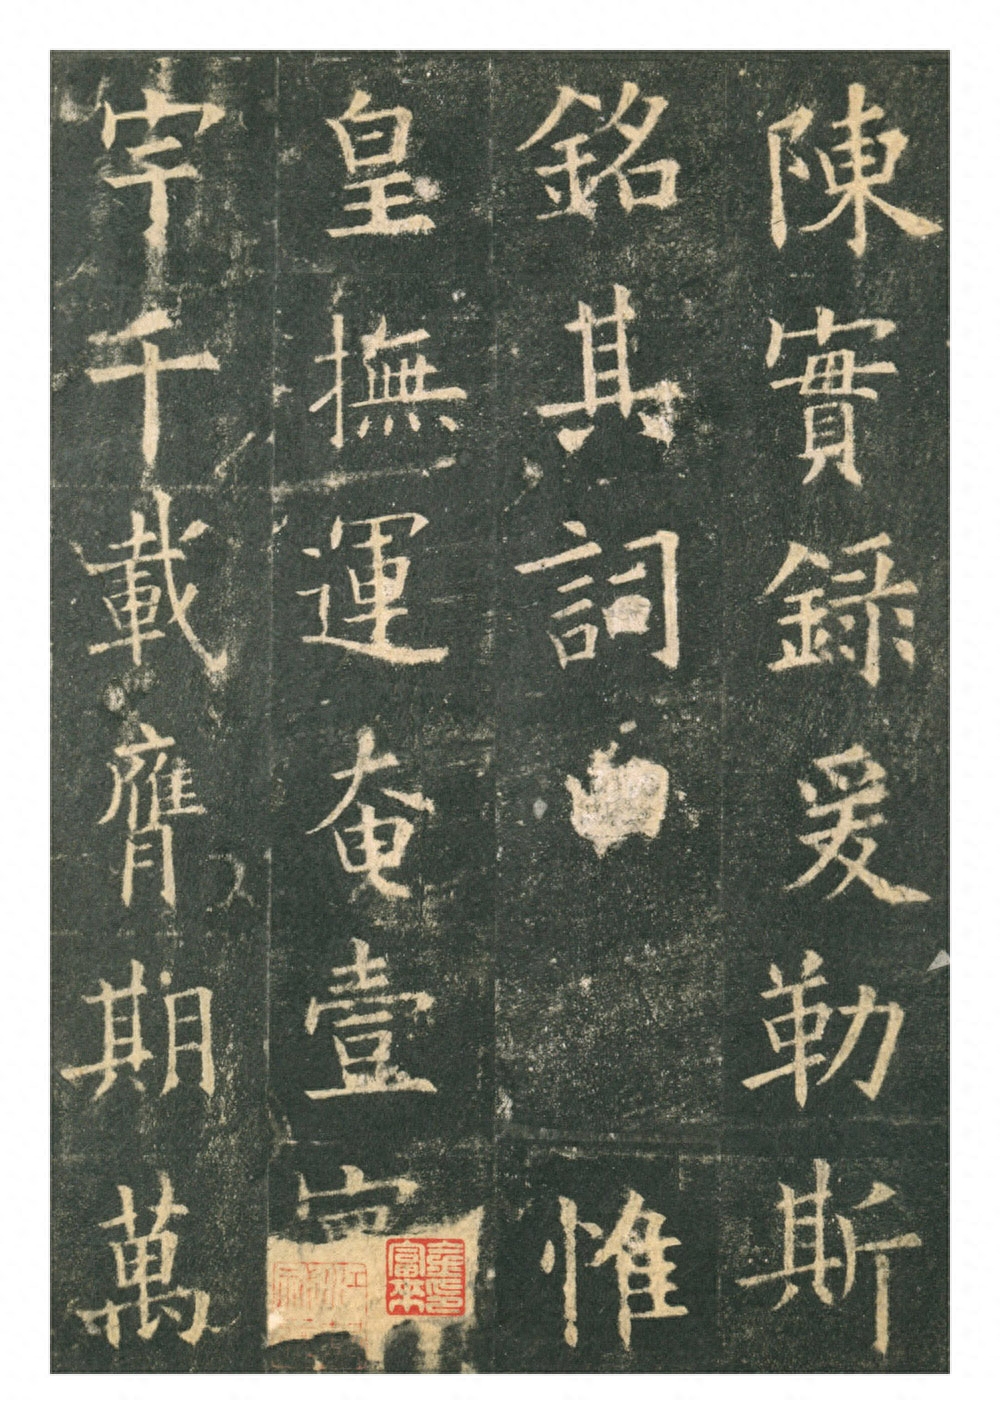 陳實録爰勒斯
銘其詞惟
皇撫運奄壹
宇千載膺期萬